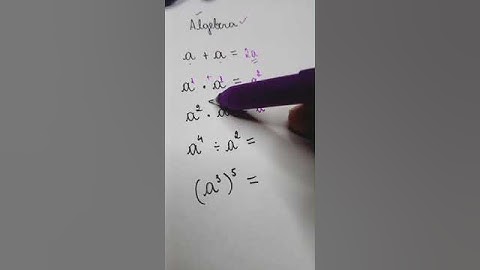 Algebra
a + a = 2a
a¹ · a¹ = a²
a² ·
a⁴ ÷ a² =
(a³)⁵ =